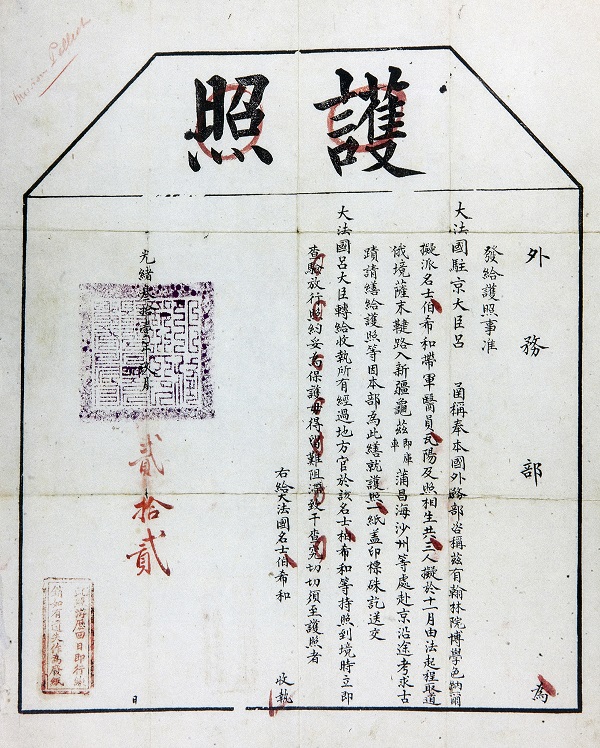 Mission Pelliot
護照
外務部 為
發給護照事准
大法國駐京大臣呂 函稱奉本國外務部咨稱茲有翰林院博學色納爾
擬派名士伯希和帶軍醫員瓦陽及照相生共三人擬於十一月由法起程取道
俄境薩末韃路入新疆龜茲即庫車蒲昌海沙州等處赴京沿途考求古
蹟請繕給護照等因本部為此繕就護照一紙蓋印標硃訖送交
大法國呂大臣轉給收執所有經過地方官於該名士伯希和等持照到境時立即
查驗放行照約妥為保護毋得留難阻滯致干查究切切須至護照者
右給大法國名士伯希和 收執
光緒叁拾壹年玖月 貳拾貳 日
游歷回日即行繳
銷如有遺失作為廢紙